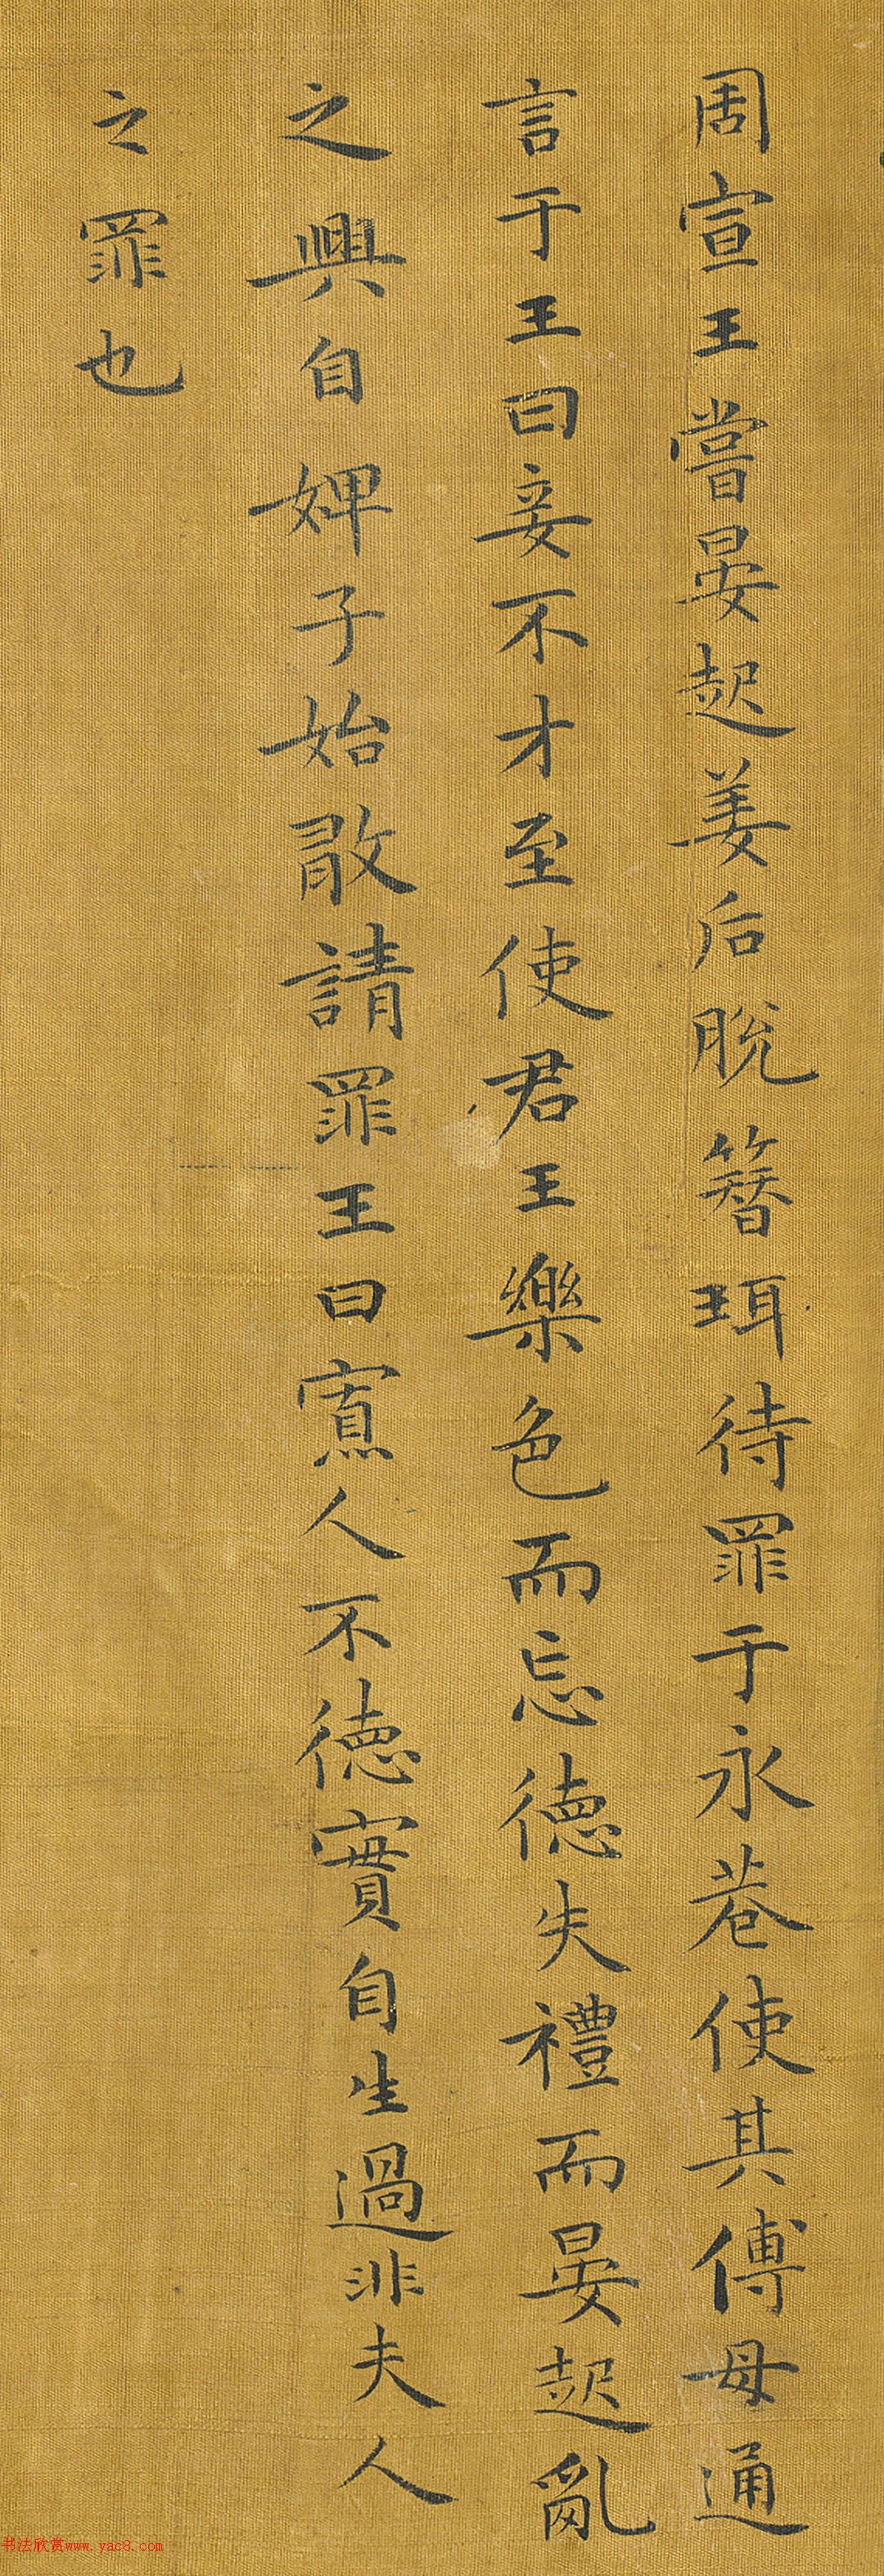 周宣王嘗晏起姜后脫簪珥待罪于永巷使其傅母通
言于王曰妾不才至使君王樂色而忘德失禮而晏起亂
之興自婢子始敢請罪王曰寡人不德實自生過非夫人
之罪也
书法欣赏www.yac8.com